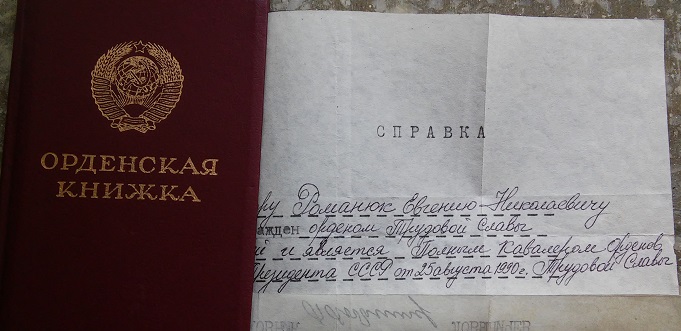 ОРДЕНСКАЯ
КНИЖКА
СПРАВКА
ру Романюк Евгению Николаевичу
ажден орденом Трудовой Славы
ой и является Полным Кавалером Орденов
резидента СССР от 25 августа 1990 г. Трудовой Славы